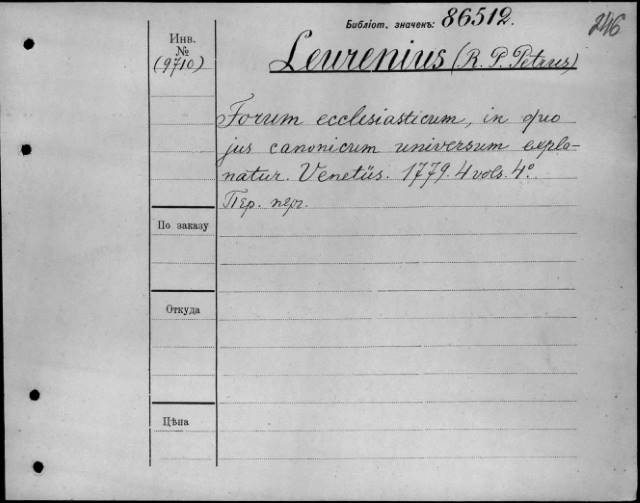 Библіот. значекъ: 86512.
246
Инв.
№
(9710)
Leurenius (R. P. Petrus)
Forum ecclesiasticum, in quo
jus canonicum universum expla-
natur. Venetiis. 1779. 4 vols. 4°.
Пер. перг.
По заказу
Откуда
Цѣна